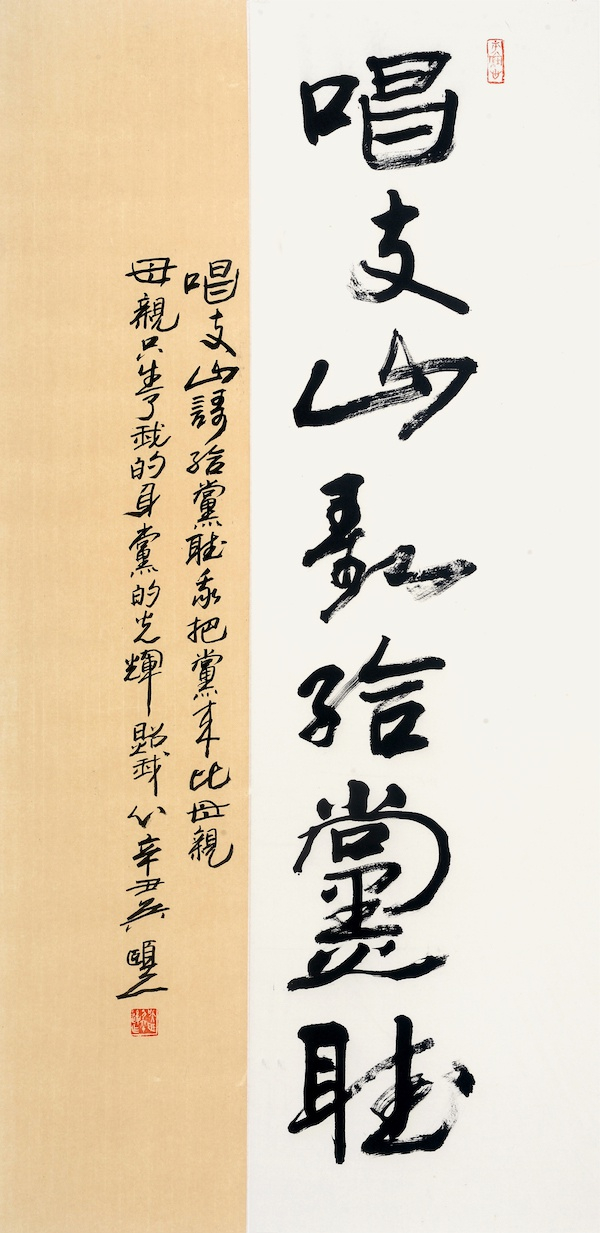 唱支山歌給黨聽
唱支山謌給黨聽我把黨来比母親
母親只生了我的身黨的光輝照我心辛丑吴頤人